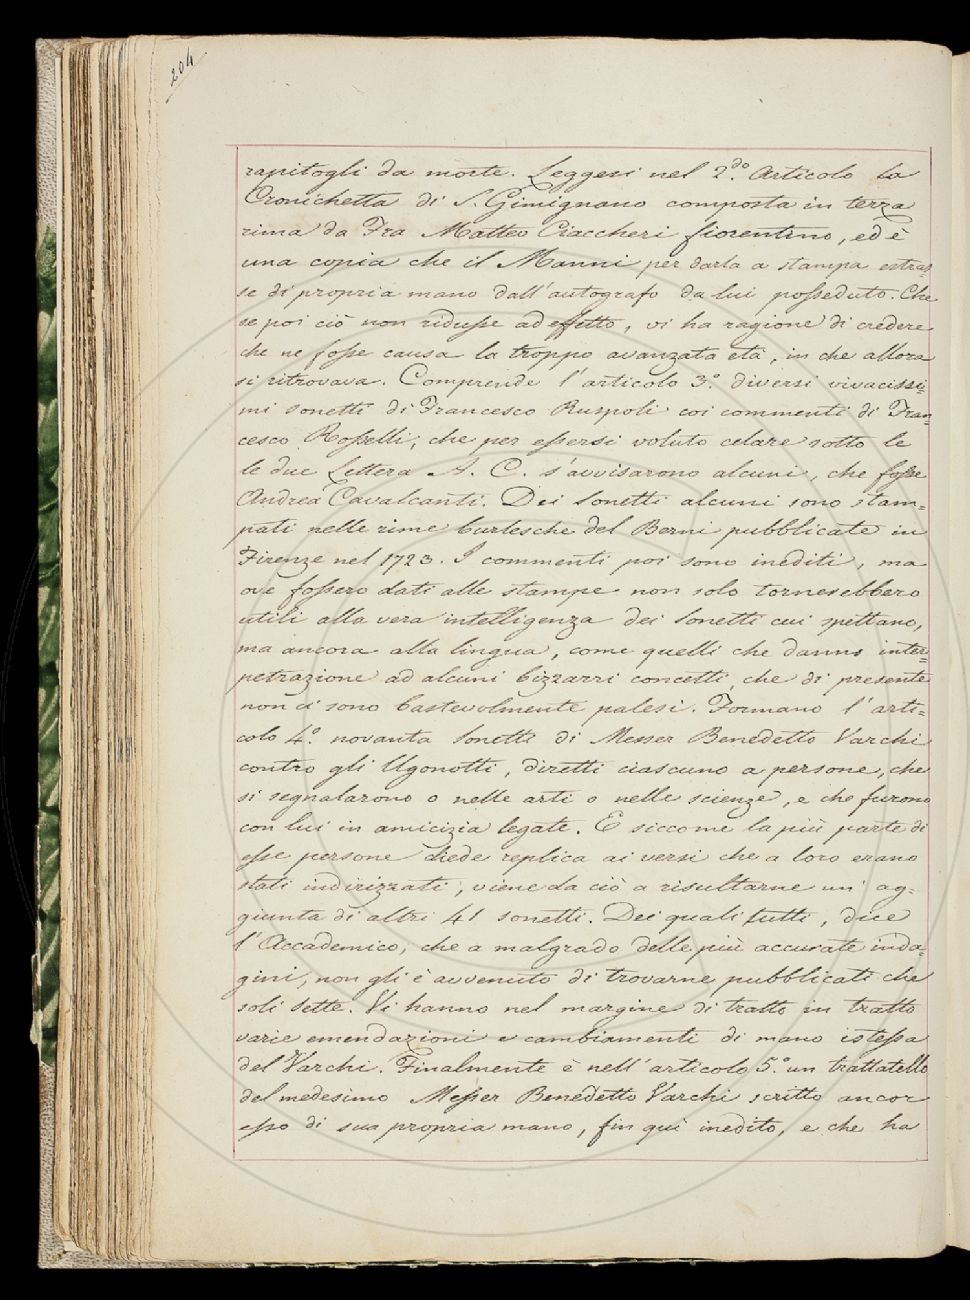 204
rapitogli da morte. Leggesi nel 2.do Articolo la
Cronichetta di S. Gimignano composta in terza
rima da Fra Matteo Ciaccheri fiorentino, ed è
una copia che il Manni per darla a stampa estras=
se di propria mano dall'autografo da lui posseduto. Che
se poi ciò non ridusse ad effetto, vi ha ragione di credere
che ne fosse causa la troppo avanzata età, in che allora
si ritrovava. Comprende l'articolo 3.o diversi vivacissi=
mi sonetti di Francesco Ruspoli coi commenti di Fran=
cesco Rosselli, che per essersi voluto celare sotto le
le due Lettera A. C. s'avvisarono alcuni, che fosse
Andrea Cavalcanti. Dei sonetti alcuni sono stam=
pati nelle rime burlesche del Berni pubblicate in
Firenze nel 1723. I commenti poi sono inediti, ma
ove fossero dati alle stampe non solo tornerebbero
utili alla vera intelligenza dei sonetti cui spettano,
ma ancora alla lingua, come quelli che danno inter=
petrazione ad alcuni bizzarri concetti, che di presente
non ci sono bastevolmente palesi. Formano l'arti=
colo 4.o novanta sonetti di Messer Benedetto Varchi
contro gli Ugonotti, diretti ciascuno a persone, che
si segnalarono o nelle arti o nelle scienze, e che furono
con lui in amicizia legate. E siccome la più parte di
esse persone diede replica ai versi che a loro erano
stati indirizzati, viene da ciò a risultarne un' ag=
giunta di altri 41 sonetti. Dei quali tutti, dice
l'Accademico, che a malgrado delle più accurate inda=
gini, non gli è avvenuto di trovarne pubblicati che
soli sette. Vi hanno nel margine di tratto in tratto
varie emendazioni e cambiamenti di mano istessa
del Varchi. Finalmente è nell'articolo 5.o un trattatello
del medesimo Messer Benedetto Varchi scritto ancor
esso di sua propria mano, fin qui inedito, e che ha